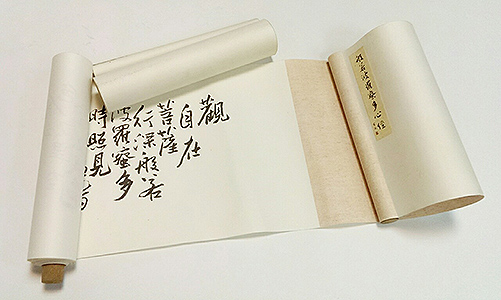 般若波羅蜜多心經
觀
自在
菩薩
行深般若
波羅蜜多
時照見